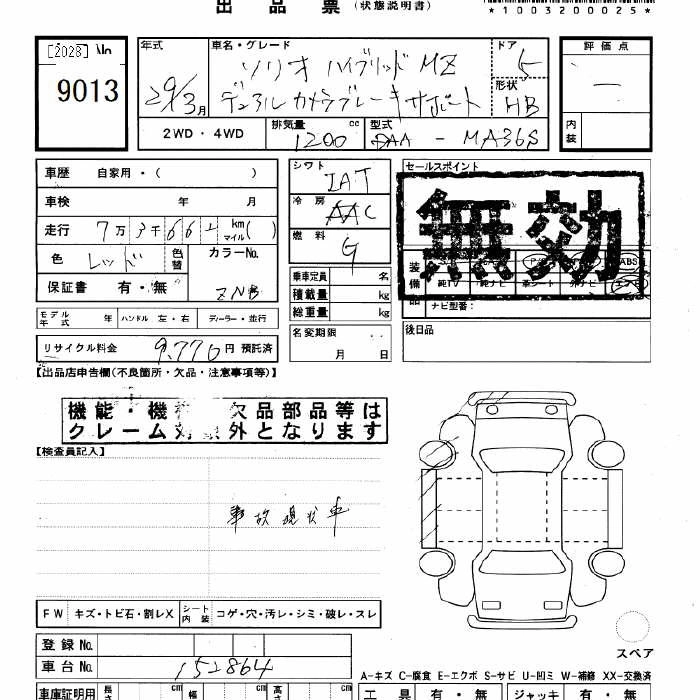 出品票 (状態説明書)
*1003200025*
[2028]
9013
年式 29/3月
車名・グレード ソリオ ハイブリッド MZ
デュアルカメラブレーキサポート
ドア 5
形状 HB
評価点 —
内装
2WD・4WD
排気量 1200 cc
型式 DAA - MA36S
車歴 自家用・( )
車検 年 月
走行 7万3千661 km マイル( )
色 レッド 色替 カラーNo. ZNB
保証書 有・無
シフト IAT
冷房 AAC
燃料 G
乗車定員 名
積載量 kg
総重量 kg
セールスポイント
無効
装備品 ABS
純TV 純ナビ 革シート エアB
ナビ型番:
モデル年式 年 ハンドル 左・右 ディーラー・並行
名変期限 月 日
後日品
リサイクル料金 9,770円 預託済
【出品店申告欄(不良箇所・欠品・注意事項等)】
機能・機 欠品部品等は
クレーム対象外となります
【検査員記入】
事故現状車
FW キズ・トビ石・割レX シート内装 コゲ・穴・汚レ・シミ・破レ・スレ
スペア
登録No.
車台No. 152864
A-キズ C-腐食 E-エクボ S-サビ U-凹ミ W-補修 XX-交換済
車庫証明用 長さ cm 幅 cm 高さ cm
工具 有・無 ジャッキ 有・無